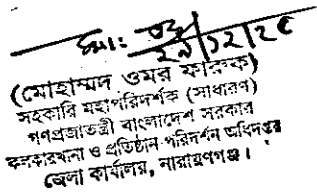 ২৯/১২/২৫
(মোহাম্মদ ওমর ফারুক)
সহকারি মহাপরিদর্শক (সাধারণ)
গণপ্রজাতন্ত্রী বাংলাদেশ সরকার
কলকারখানা ও প্রতিষ্ঠান পরিদর্শন অধিদপ্তর
জেলা কার্যালয়, নারায়ণগঞ্জ।